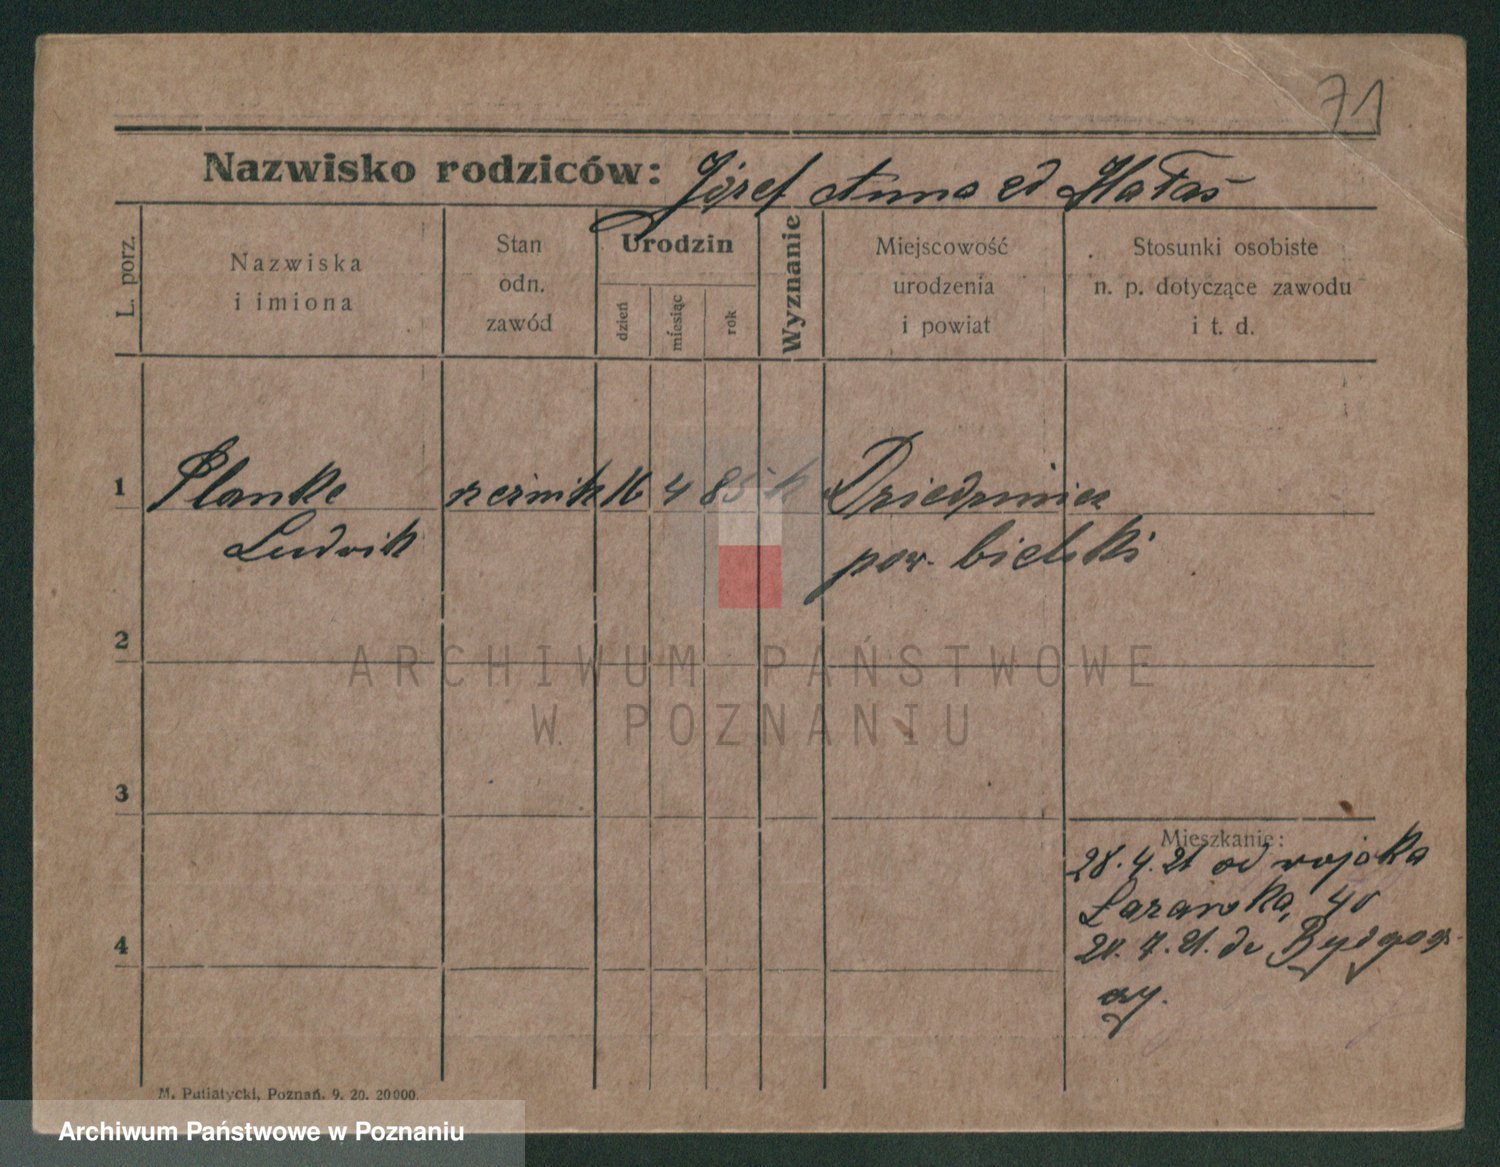 71
Nazwisko rodziców: Józef Anna zd Hałaś
L. porz.
Nazwiska
i imiona
Stan
odn.
zawód
Urodzin
dzień
miesiąc
rok
Wyznanie
Miejscowość
urodzenia
i powiat
Stosunki osobiste
n. p. dotyczące zawodu
i t. d.
1 Planke rzeźnik 16 4 85 k Dziedzmicz
Ludwik pow. bielski
2
ARCHIWUM PAŃSTWOWE
W POZNANIU
3
Mieszkanie:
28.4.21 od wojska
Łazarska, 40
4
21.7.21. do Bydgosz-
czy.
M. Putiatycki, Poznań. 9. 20. 20000.
Archiwum Państwowe w Poznaniu